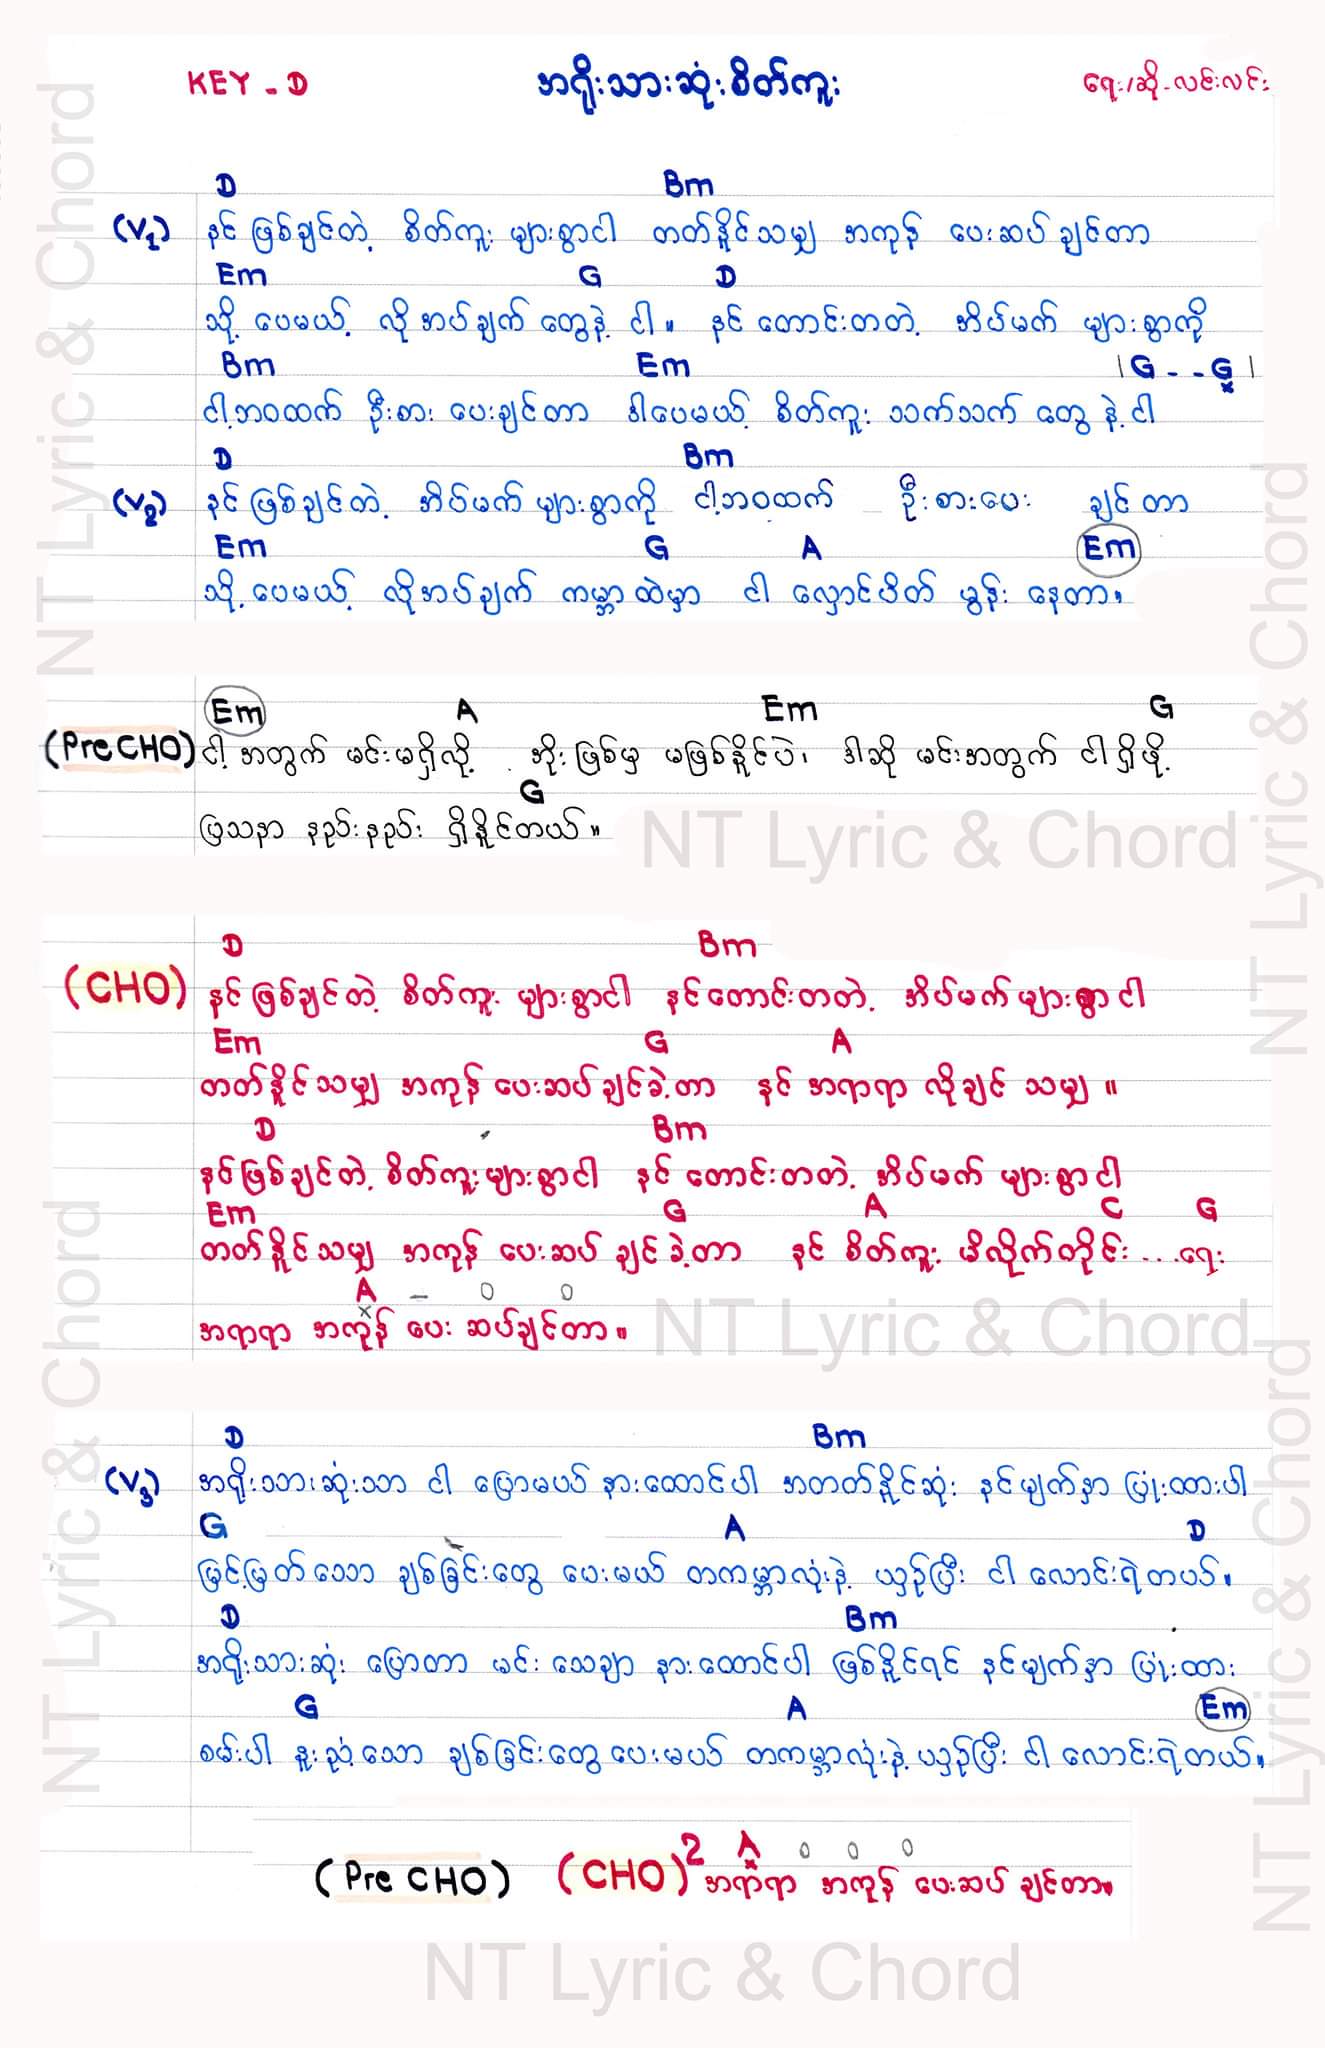 KEY - D
အရိုးသားဆုံးစိတ်ကူး
ရေး/ဆို - လင်းလင်း
D Bm
(V1) နင်ဖြစ်ချင်တဲ့ စိတ်ကူး များစွာငါ တတ်နိူင်သမျှ အကုန် ပေးဆပ်ချင်တာ
Em G D
သို့ပေမယ့် လိုအပ်ချက်တွေနဲ့ ငါ။ နင်တောင်းတတဲ့ အိပ်မက် များစွာကို
Bm Em | G - - G |
ငါ့ဘဝထက် ဦးစားပေးချင်တာ ဒါပေမယ့် စိတ်ကူးသက်သက်တွေနဲ့ ငါ
D Bm
(V2) နင်ဖြစ်ချင်တဲ့ အိပ်မက်များစွာကို ငါ့ဘဝထက် ဦးစားပေး ချင်တာ
Em G A Em
သို့ပေမယ့် လိုအပ်ချက် ကမ္ဘာထဲမှာ ငါ လှောင်ပိတ် မွန်းနေတာ။
Em A Em G
(Pre CHO) ငါ့အတွက် မင်းမရှိလို့ ဘိုးဖြစ်မှ မဖြစ်နိူင်ပဲ၊ ဒါဆို မင်းအတွက် ငါရှိဖို့
G
ပြသနာ နည်းနည်း ရှိနိူင်တယ်။
NT Lyric & Chord
D Bm
(CHO) နင်ဖြစ်ချင်တဲ့ စိတ်ကူး များစွာငါ နင်တောင်းတတဲ့ အိပ်မက်များစွာငါ
Em G A
တတ်နိူင်သမျှ အကုန်ပေးဆပ်ချင်ခဲ့တာ နင် အရာရာ လိုချင်သမျှ ။
D Bm
နင်ဖြစ်ချင်တဲ့ စိတ်ကူးများစွာငါ နင်တောင်းတတဲ့ အိပ်မက် များစွာငါ
Em G A C G
တတ်နိူင်သမျှ အကုန် ပေးဆပ်ချင်ခဲ့တာ နင် စိတ်ကူးမိလိုက်တိုင်း ...ရေး
A
အရာရာ အကုန်ပေး ဆပ်ချင်တာ။
NT Lyric & Chord
D Bm
(V3) အရိုးသားဆုံးသာ ငါ ပြောမယ် နားထောင်ပါ အတတ်နိူင်ဆုံး နင်မျက်နှာ ပြုံးထားပါ
G A D
မြင့်မြတ်သော ချစ်ခြင်းတွေ ပေးမယ် တကမ္ဘာလုံးနဲ့ ယှဉ်ပြီး ငါ လောင်းရဲတယ်။
D Bm
အရိုးသားဆုံး ပြောတာ မင်း သေချာ နားထောင်ပါ ဖြစ်နိူင်ရင် နင်မျက်နှာ ပြုံးထား
G A Em
စမ်းပါ နူးညံ့သော ချစ်ခြင်းတွေပေးမယ် တကမ္ဘာလုံးနဲ့ ယှဉ်ပြီး ငါ လောင်းရဲတယ်။
A
(Pre CHO) (CHO)2 အရာရာ အကုန် ပေးဆပ်ချင်တာ။
NT Lyric & Chord
NT Lyric & Chord
NT Lyric & Chord
NT Lyric & Chord
NT Lyric & Chord
NT Lyric & Chord
NT Lyric & Chord